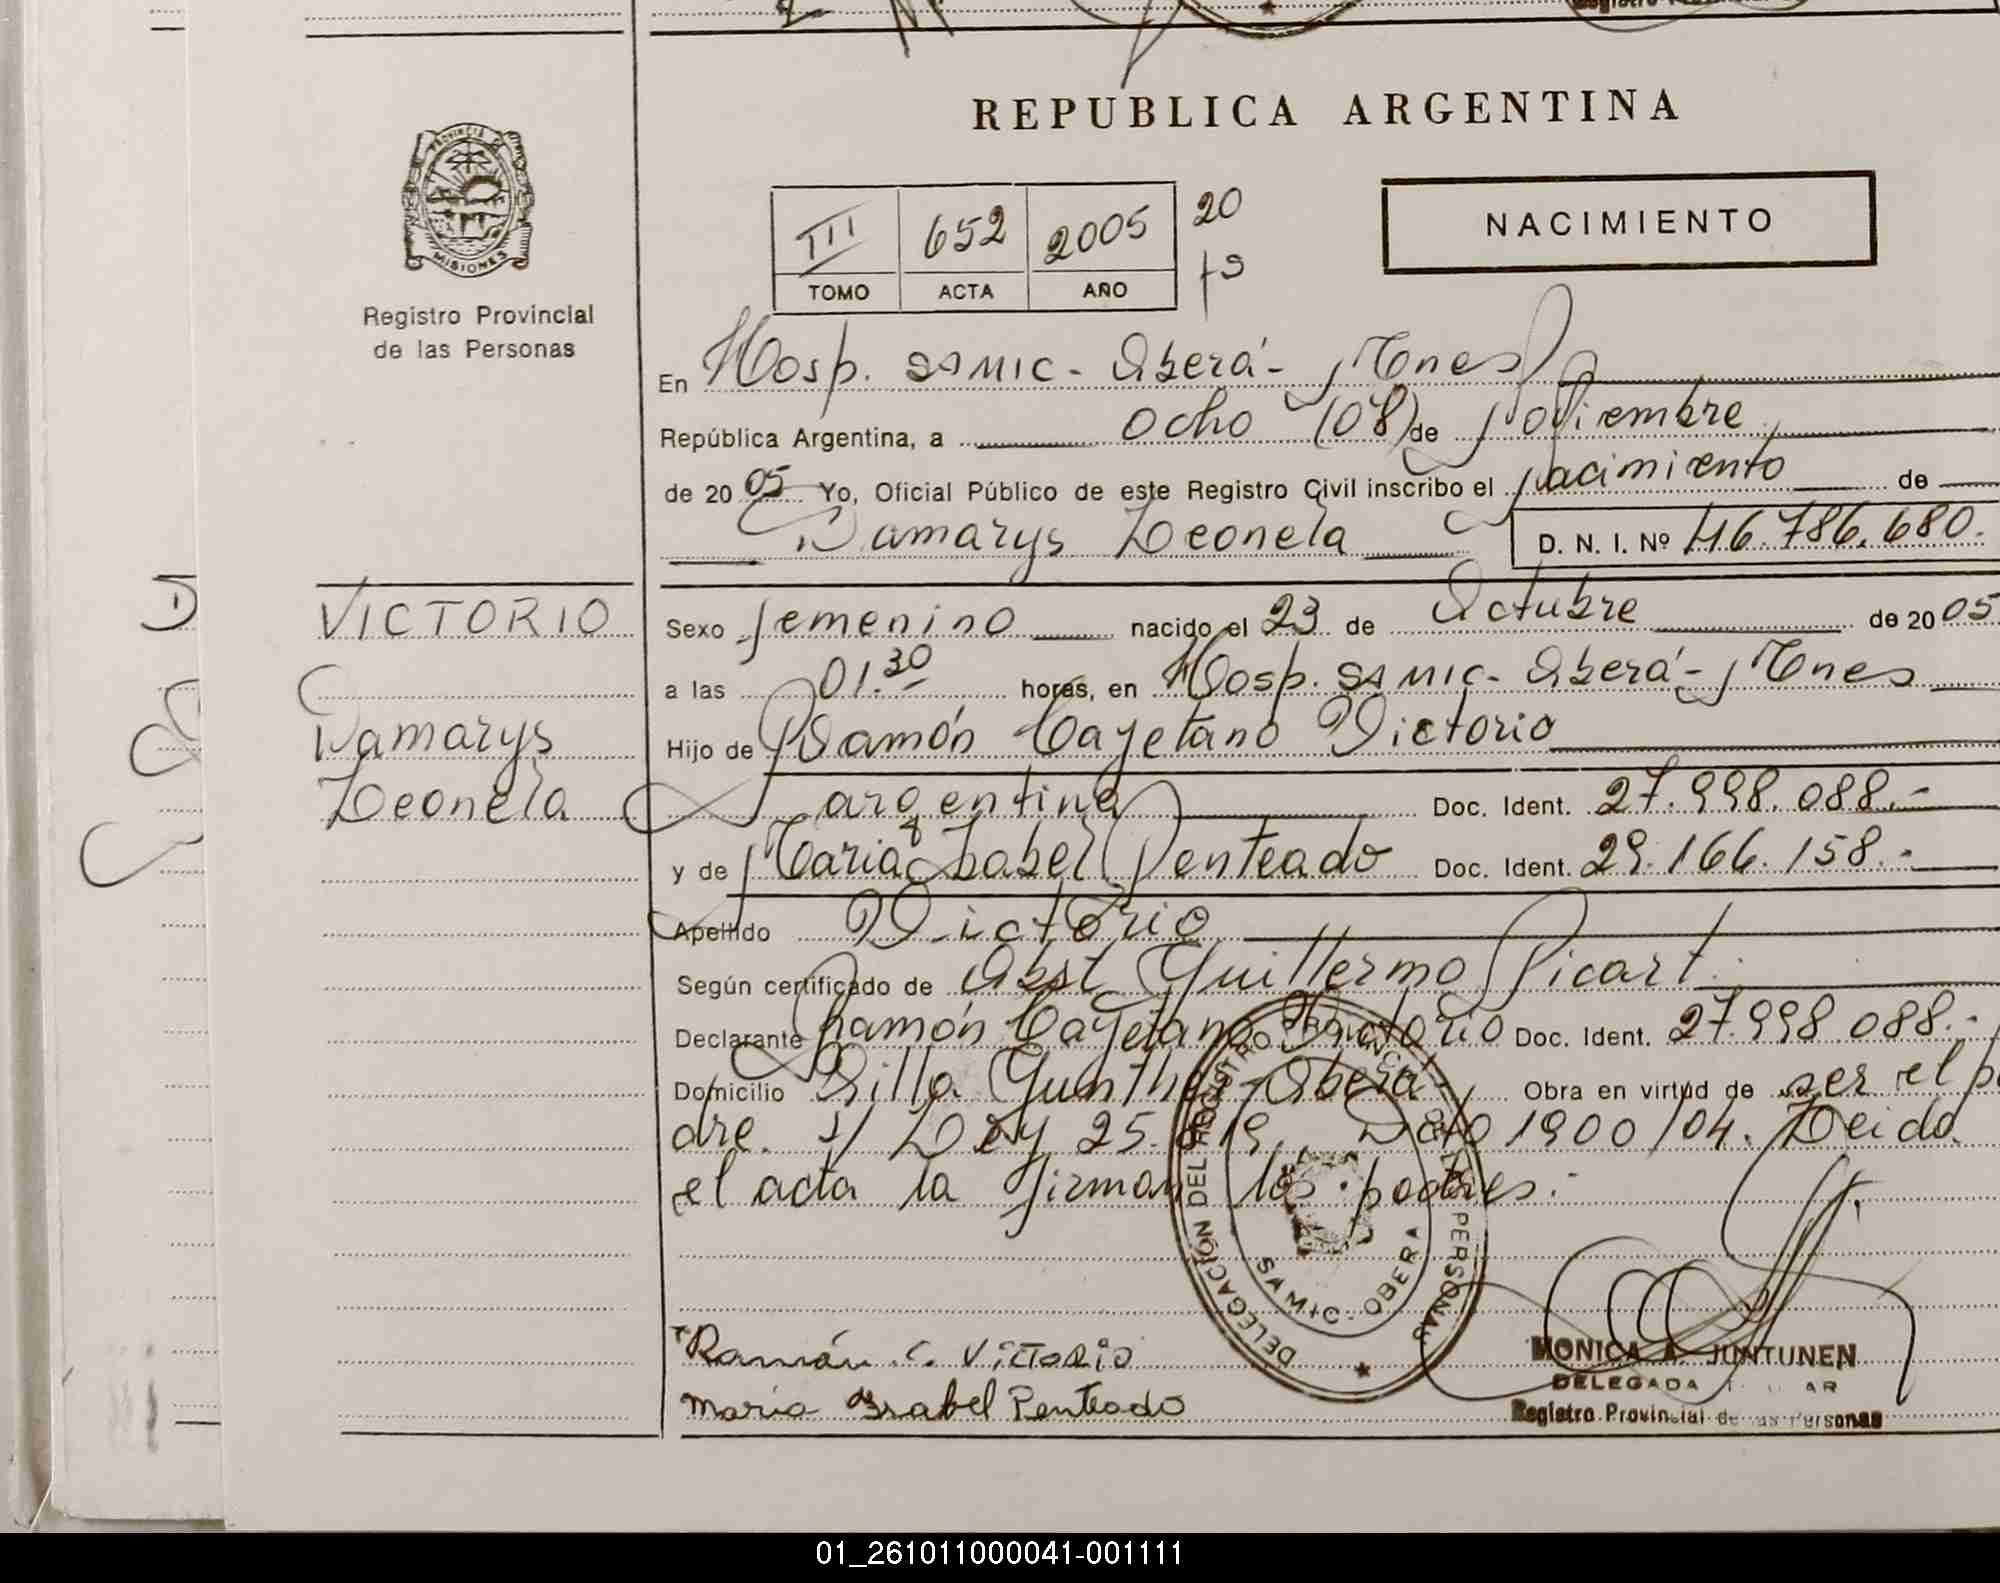 REPUBLICA ARGENTINA
PROVINCIA DE
MISIONES
Registro Provincial
de las Personas
III 652 2005 20
TOMO ACTA AÑO
NACIMIENTO
En Hosp. SAMIC - Oberá - Mnes
República Argentina, a ocho (08) de Noviembre
de 2005 Yo, Oficial Público de este Registro Civil inscribo el Nacimiento de
Damarys Leonela D. N. I. Nº 46.786.680.
VICTORIO
Damarys
Leonela
Sexo femenino nacido el 23 de Octubre de 2005
a las 01.30 horas, en Hosp. SAMIC - Oberá - Mnes
Hijo de Ramón Cayetano Victorio
argentina Doc. Ident. 27.998.088.-
y de María Isabel Penteado Doc. Ident. 29.166.158.-
Apellido Victorio
Según certificado de Obst Guillermo Picart
Declarante Ramón Cayetano Victorio Doc. Ident. 27.998.088.-
Domicilio Villa Gunther - Oberá - Obra en virtud de ser el pa
dre. s/ Ley 25.819. Dcto 1900/04. Leida
el acta la firman los padres.-
DELEGACIÓN DEL REGISTRO PROVINCIAL DE LAS PERSONAS
SAMIC - OBERA
Ramón C. Victorio
María Isabel Penteado
MONICA A. JUNTUNEN
DELEGADA
Registro Provincial de las Personas
01_261011000041-001111